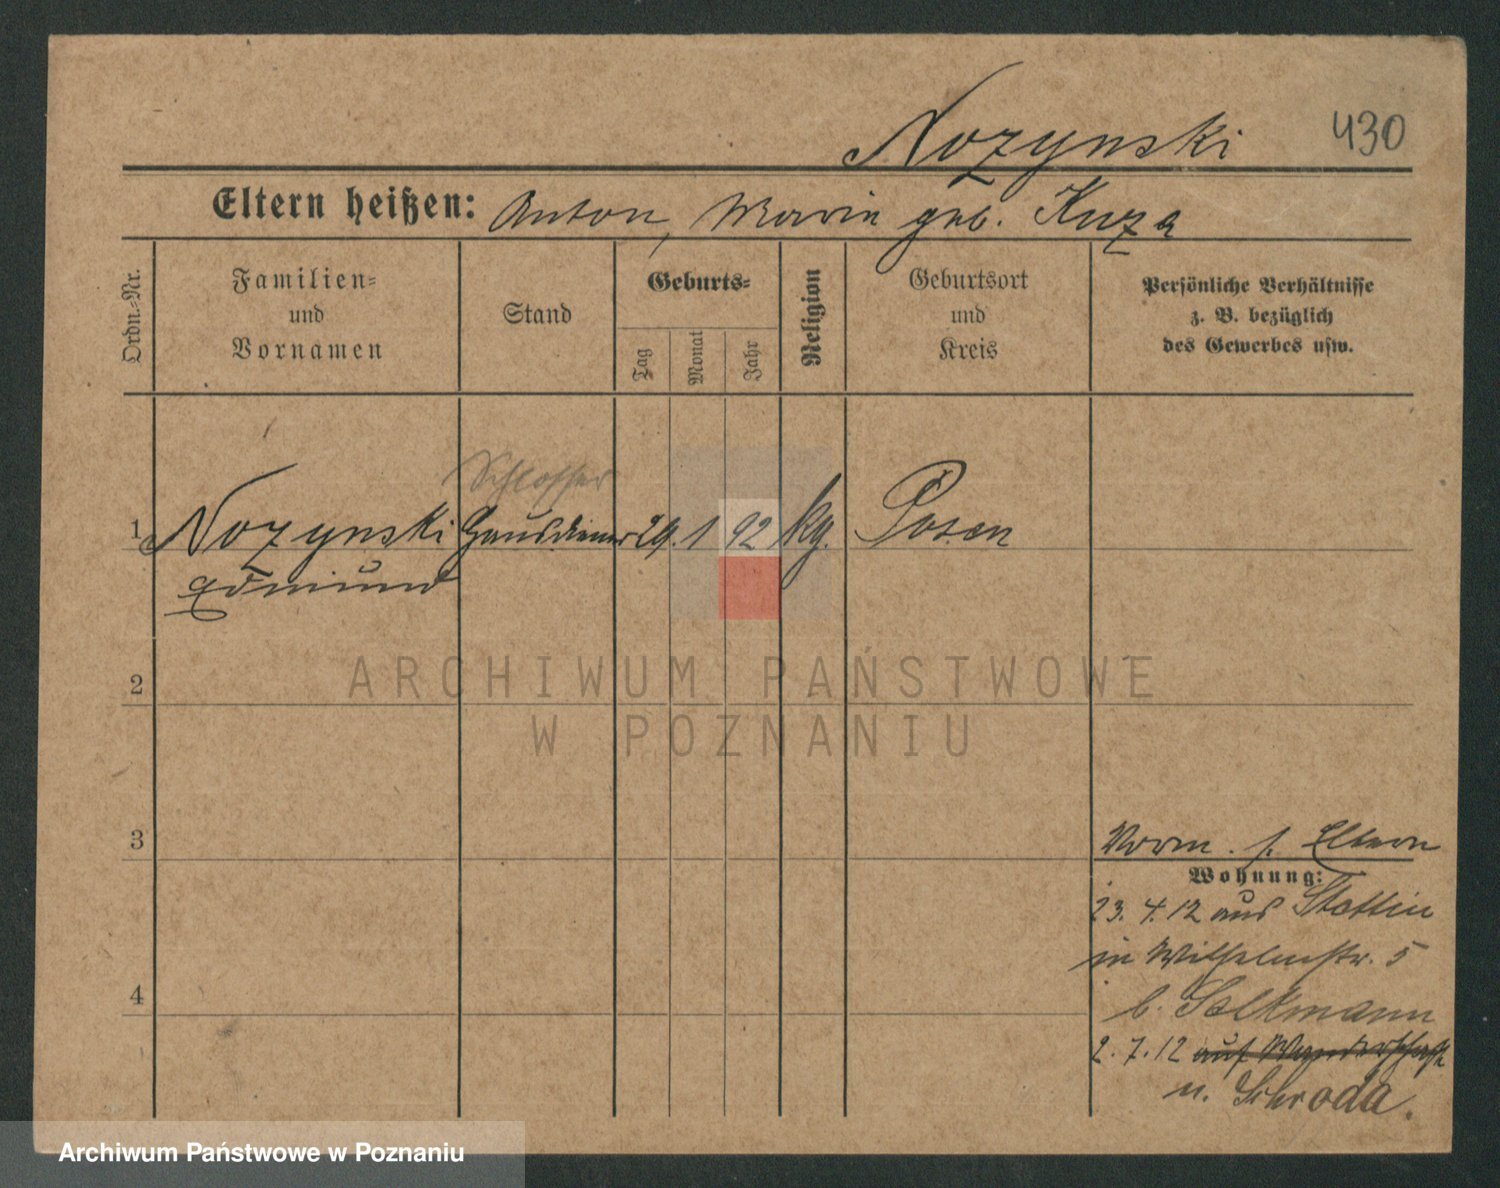 Nozynski 430
Eltern heißen: Anton, Marie geb. Kuza
Ordn.=Nr.
Familien=
und
Vornamen
Stand
Geburts=
Tag
Monat
Jahr
Religion
Geburtsort
und
Kreis
Persönliche Verhältnisse
z. B. bezüglich
des Gewerbes usw.
Schlosser
1 Nozynski Hausdiener 29. 1 92 kg. Posen
Edmund
2
ARCHIWUM PAŃSTWOWE
W POZNANIU
3
Vorm. s. Eltern
Wohnung:
23. 4. 12 aus Stettin
in Wilhelmstr. 5
4
b. Salkmann
2. 7. 12 auf Wanderschaft
n. Schroda.
Archiwum Państwowe w Poznaniu